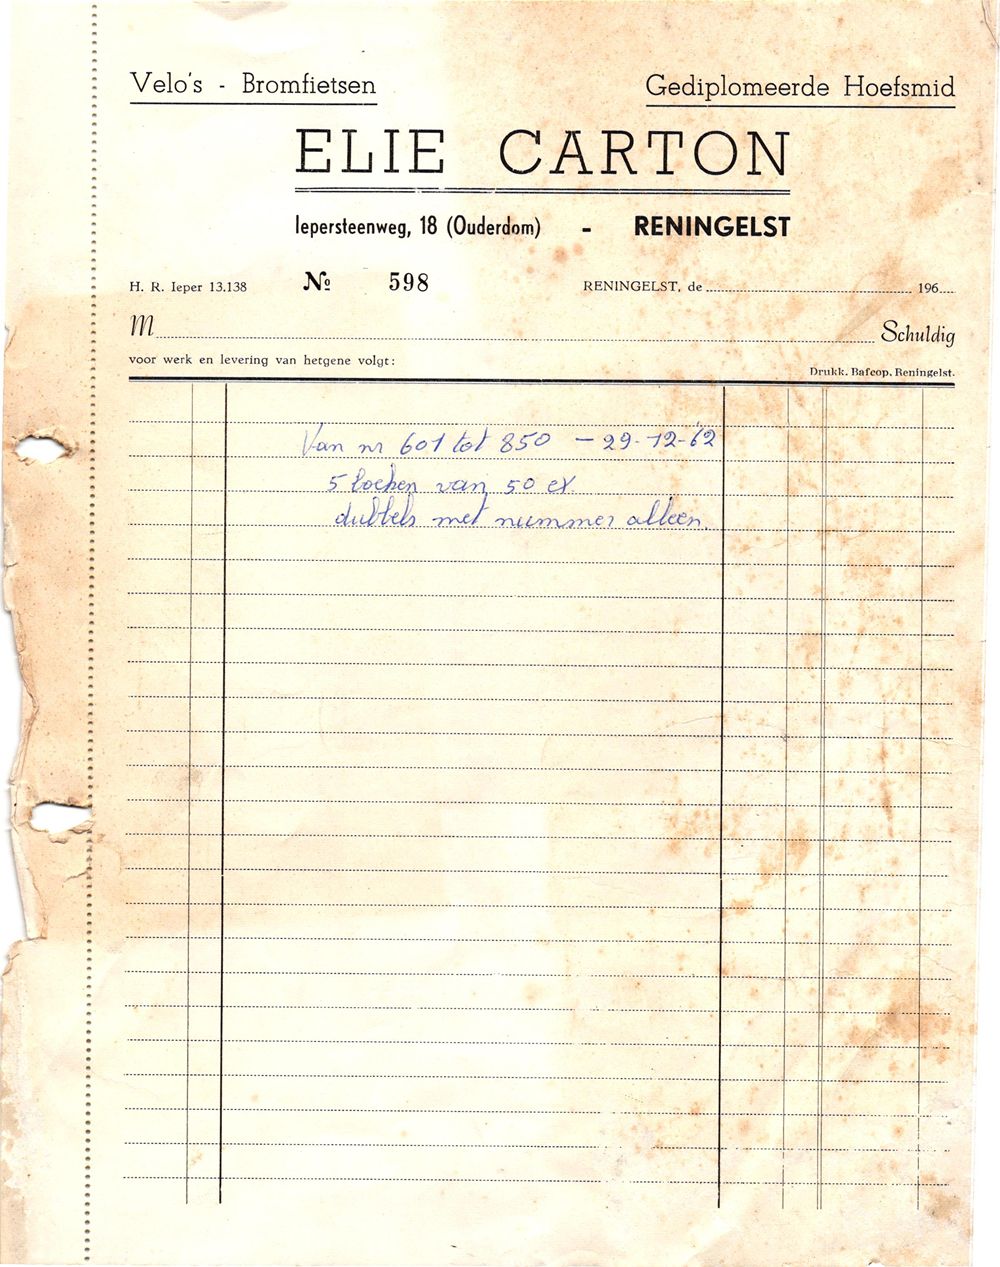 Velo's - Bromfietsen
Gediplomeerde Hoefsmid
ELIE CARTON
Iepersteenweg, 18 (Ouderdom) - RENINGELST
H. R. Ieper 13.138
№ 598
RENINGELST, de 196
M Schuldig
voor werk en levering van hetgene volgt:
Drukk. Bafcop, Reningelst.
Van nr 601 tot 850 - 29-12-'62
5 boeken van 50 ex.
dubbels met nummer alleen.